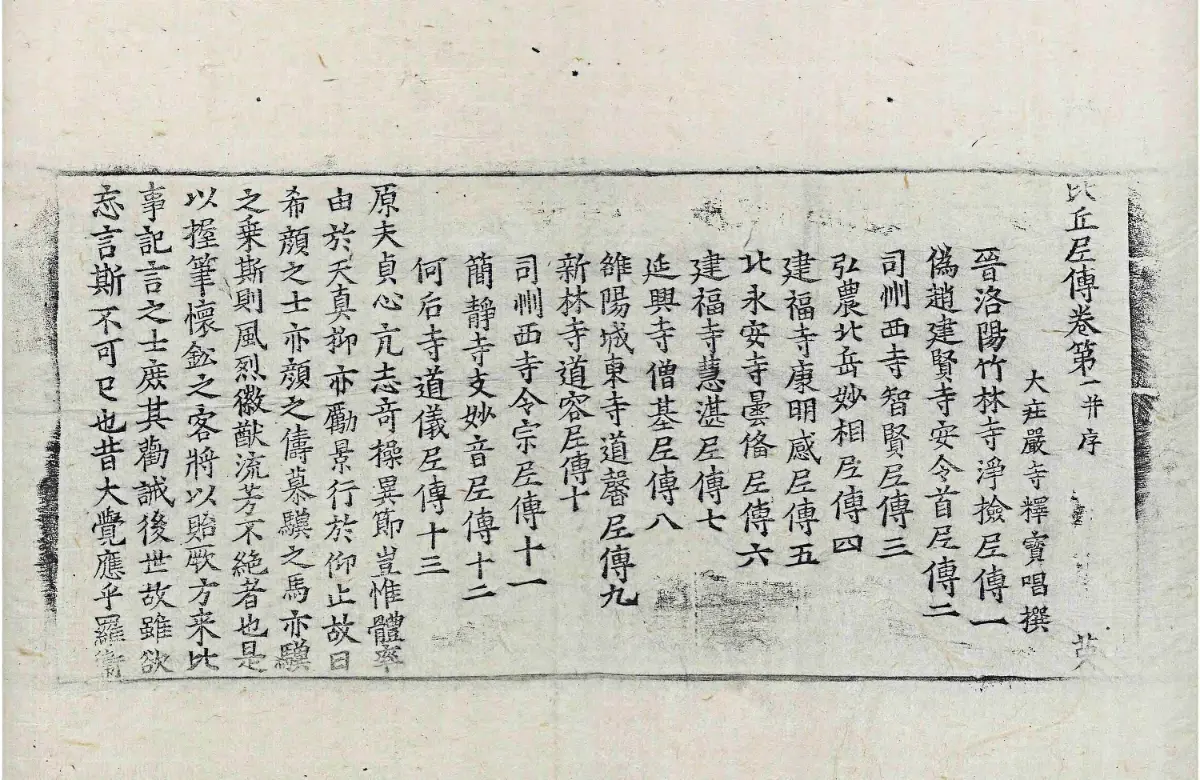 比丘尼傳卷第一 并序 英
大莊嚴寺釋寶唱撰
晉洛陽竹林寺淨撿尼傳一
偽趙建賢寺安令首尼傳二
司州西寺智賢尼傳三
弘農北岳妙相尼傳四
建福寺康明感尼傳五
北永安寺曇俻尼傳六
建福寺慧湛尼傳七
延興寺僧基尼傳八
雒陽城東寺道馨尼傳九
新林寺道容尼傳十
司州西寺令宗尼傳十一
簡靜寺支妙音尼傳十二
何后寺道儀尼傳十三
原夫貞心亢志奇操異節豈惟體率
由於天真抑亦勵景行於仰止故曰
希顔之士亦顔之儔慕驥之馬亦驥
之乗斯則風烈徽猷流芳不絶者也是
以握筆懷鈆之客將以貽厥方来比
事記言之士庶其勸誡後世故雖欲
忘言斯不可已也昔大覺應乎羅衛